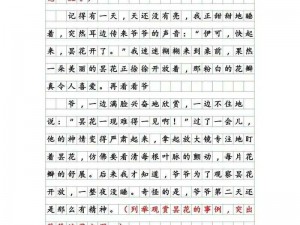 记得有一天，天还没有亮，我正甜甜地睡
着，突然耳边传来爷爷的声音：“伊可，快起
来，昙花开了。”我迷迷糊糊来到窗前，果然
一朵美丽的昙花正徐徐开放着，那粉白的花瓣
真令人喜爱。再看看爷
爷，一边满脸兴奋地欣赏，一边不住地
说：“昙花一现难得一见啊！”过了一会儿，
他的神情变得严肃起来，拿起放大镜专心地盯
着昙花，仿佛要看清每根叶脉的颤动，每片花
瓣的舒展。后来我才知道，爷爷为了观察昙花
开放，一整夜没睡。奇怪的是，爷爷第二天还
是那么有精神。（列举观赏昙花的事例，突出